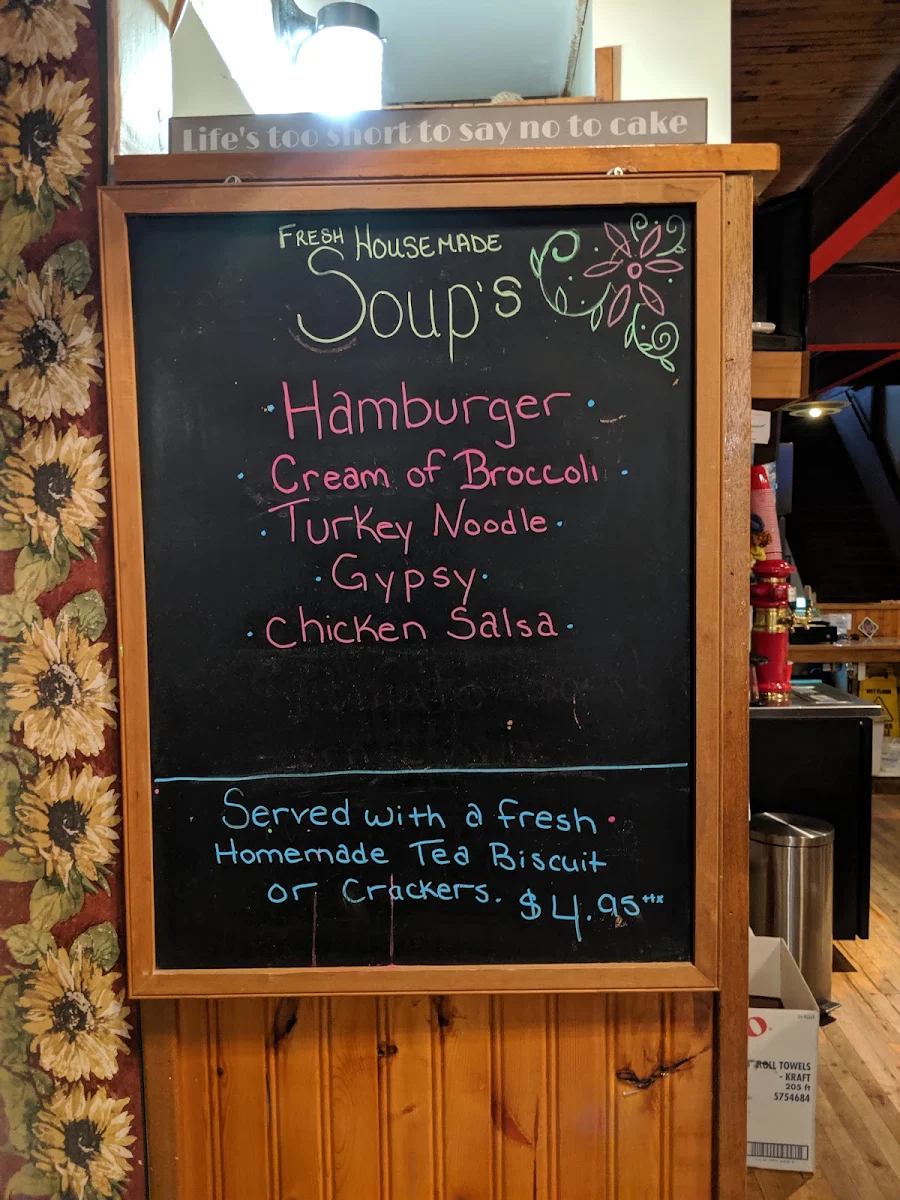 Life's too short to say no to cake
FRESH HOUSEMADE
Soup's
• Hamburger •
• Cream of Broccoli •
• Turkey Noodle •
• Gypsy •
• Chicken Salsa •
Served with a fresh
Homemade Tea Biscuit
or Crackers. $4.95 +tx
WET FLOOR
ROLL TOWELS
- KRAFT
205 ft
5754684